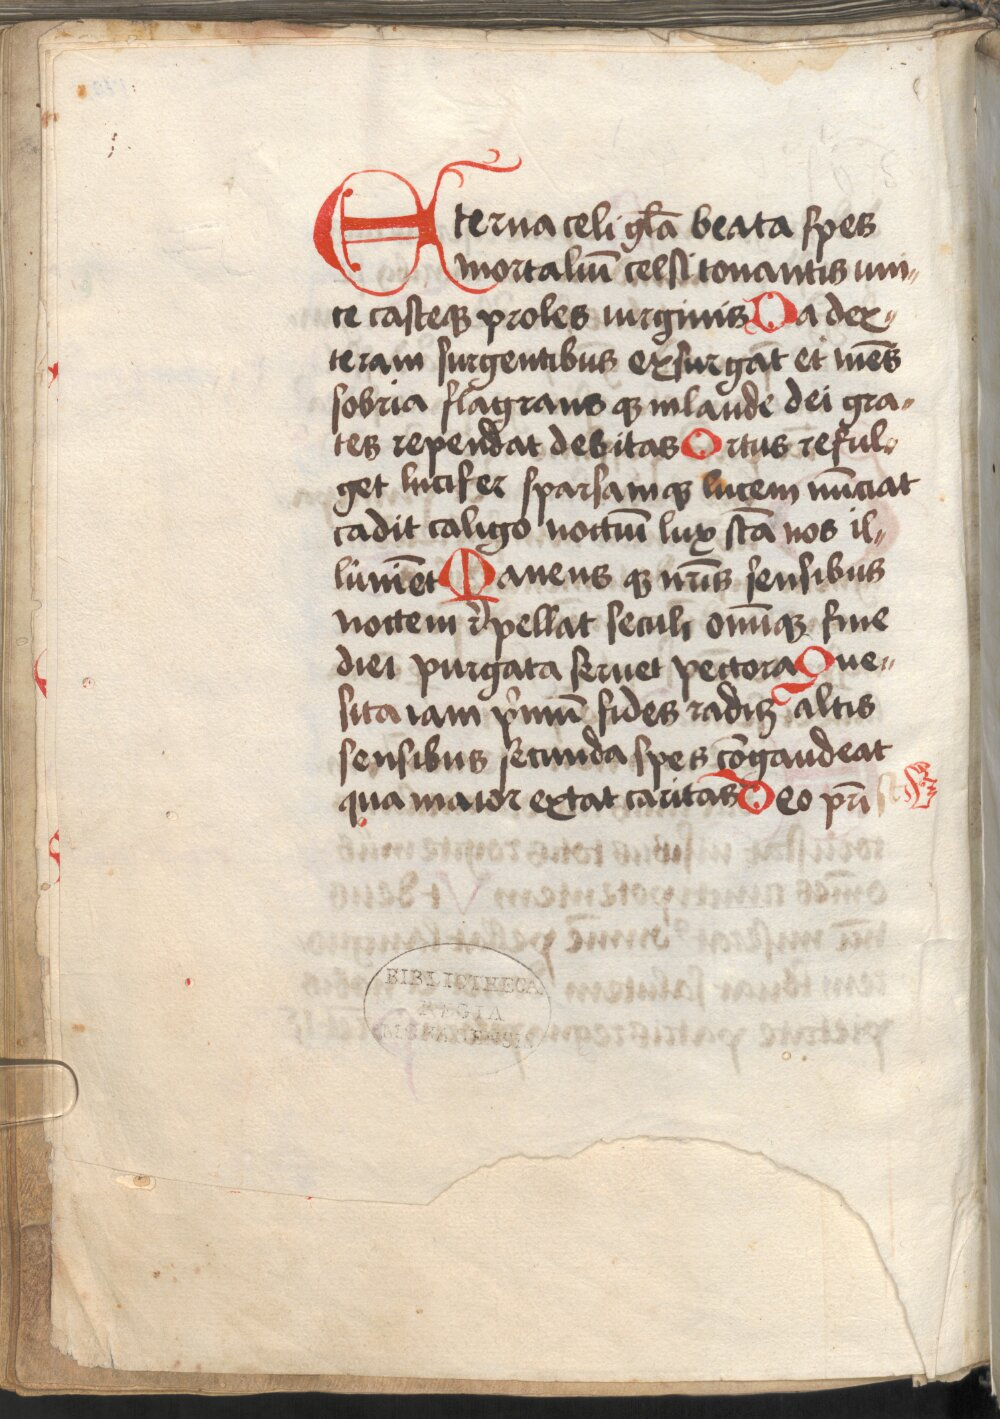 Eterna celi gl̄a beata spes
mortaliū celsi tonantis uni„
ce casteqꝫ proles uirginis Da dex„
teram surgentibus exsurgāt et mēs
sobria flagrans qꝫ in laude dei gra„
tes rependat debitas Ortus reful„
get lucifer sparsamqꝫ lucem nūciat
cadit caligo noctiū lux sc̄a nos il„
lūniēt Manens qꝫ nr̄is sensibus
noctem r̓pellat seculi omīqꝫ fine
diei purgata seruet pectora Que„
sita iam p̓mū fides radiꝫ altis
sensibus secunda spes cōgaudeat
qua maior extat caritas Deo pr̄i
BIBLIOTHECA
REGIA
MONACENSIS